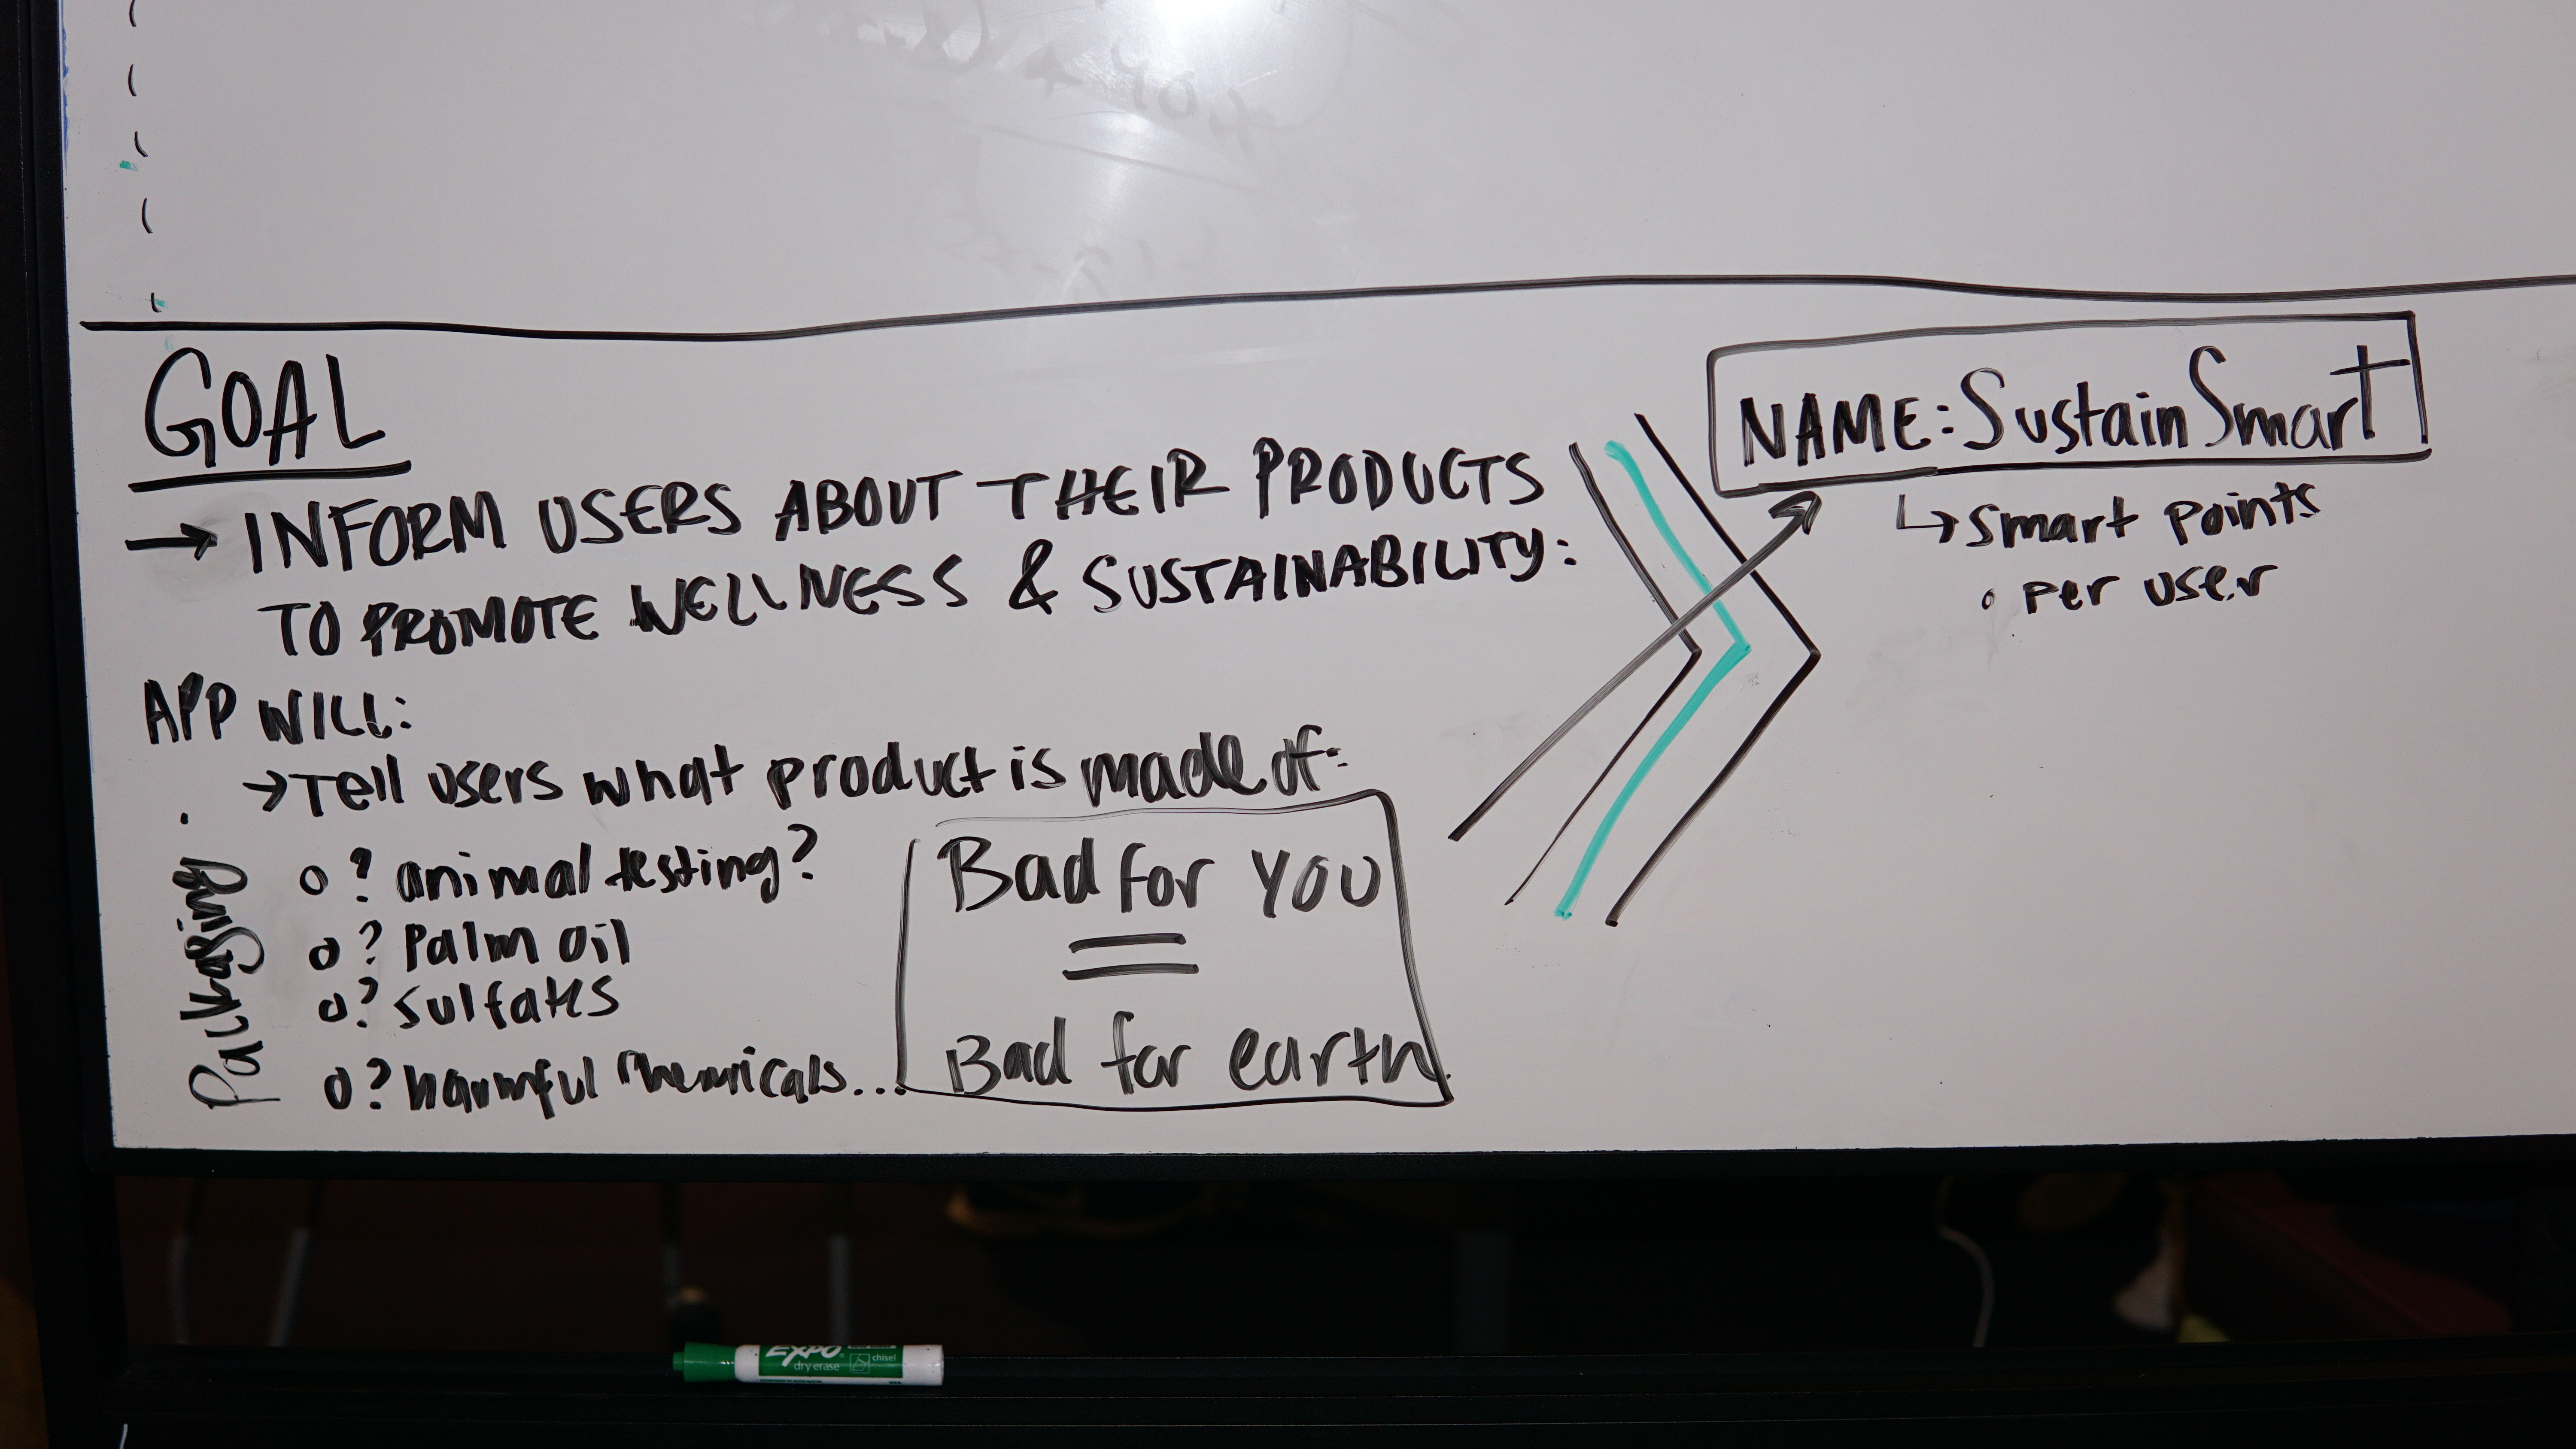 GOAL
→ INFORM USERS ABOUT THEIR PRODUCTS
TO PROMOTE WELLNESS & SUSTAINABILITY:
APP WILL:
→ Tell users what product is made of:
o ? animal testing?
o ? Palm oil
o ? Sulfates
o ? harmful chemicals...
Packaging
Bad for you
=
Bad for earth
NAME: SustainSmart
↳ Smart points
• per user
EXPO
dry erase
chisel